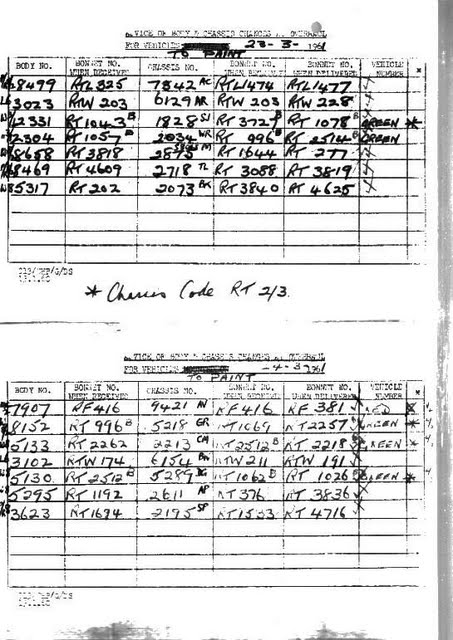 ADVICE OF BODY & CHASSIS CHANGES AT OVERHAUL
FOR VEHICLES 28-3-1961
TO PAINT
BODY NO. BONNET NO. WHEN RECEIVED CHASSIS NO. BONNET NO. BONNET NO. WHEN DELIVERED VEHICLE NUMBER
8499 RTL325 7342 AC RTL1474 RTL1477
3023 RTW 203 6129 AR RTW 203 RTW 228
2331 RT1043B 1828 SJ RT 3727 RT 1078B GREEN *
2304 RT1057B 2034 WR RT 996B RT 2514B GREEN
8658 RT 3818 2875 RT 1644 RT 277
8469 RT 4609 2718 TL RT 3088 RT 3819
5317 RT 202 2073 BK RT 3840 RT 4625
* Chassis Code RT 2/3.
ADVICE OF BODY & CHASSIS CHANGES AT OVERHAUL
FOR VEHICLES -4-1961
TO PAINT
BODY NO. BONNET NO. WHEN RECEIVED CHASSIS NO. BONNET NO. BONNET NO. WHEN DELIVERED VEHICLE NUMBER
7907 RF416 9421 AV RF 416 RF 381 RED *
8152 RT 996B 5218 GR RT1069 RT2257 GREEN *
5133 RT 2262 2213 CM RT2512B RT 2218 GREEN *
3102 RTW 174 6154 RTW211 RTW 191
5130 RT 2512B 5289 RT1062B RT 1026B GREEN *
5295 RT 1192 2611 AP RT 376 RT 3836
3623 RT1694 2195 SP RT1533 RT 4716